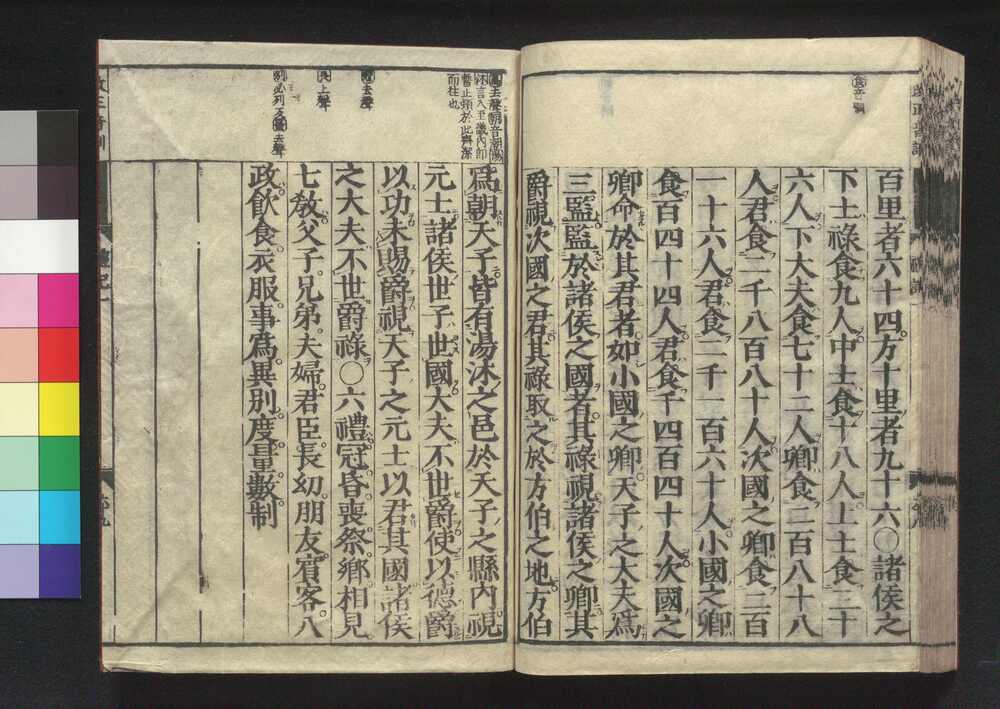 食音嗣
百里者六十四方十里者九十六〇諸侯之
下士祿食九人中士食十八人上士食三十
六人下大夫食七十二人卿食二百八十八
人君食二千八百八十人次國之卿食二百
一十六人君食二千一百六十人小國之卿
食百四十四人君食千四百四十人次國之
卿命於其君者如小國之卿天子之大夫爲
三監監於諸侯之國者其祿視諸侯之卿其
爵視次國之君其祿取之於方伯之地方伯
爲朝天子皆有湯沐之邑於天子之縣內視
元士諸侯世子世國大夫不世爵使以德爵
以功未賜爵視天子之元士以君其國諸侯
之大夫不世爵祿〇六禮冠昏喪祭鄉相見
七敎父子兄弟夫婦君臣長幼朋友賓客八
政飮食衣服事爲異別度量數制
去聲
長上聲